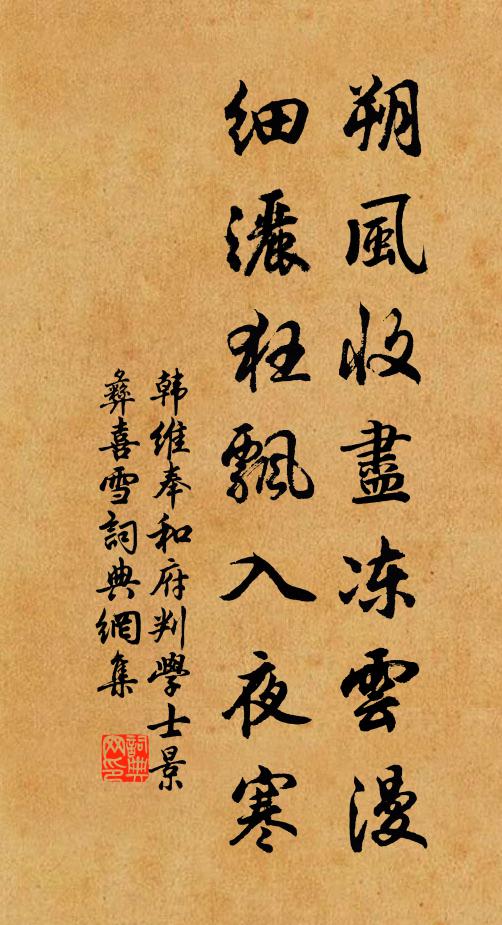 朔風收盡冻雲漫
細灑狂飄入夜寒
韩維奉和府判學士景
彝喜雪詞典網集
詞典
网印